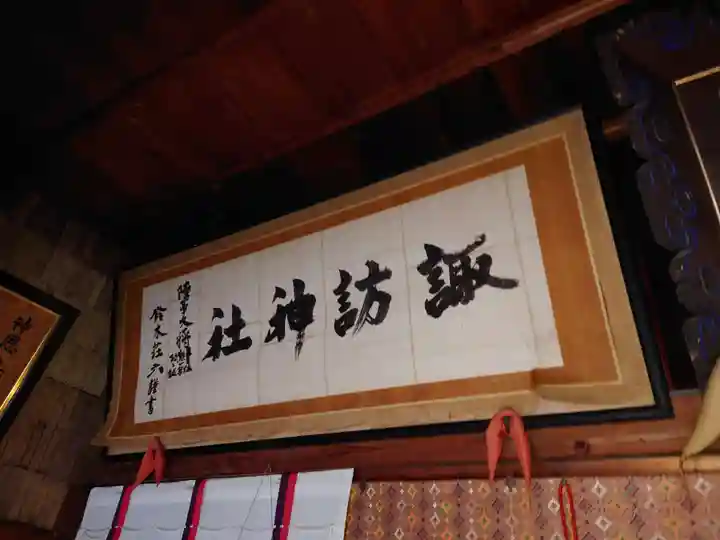 諏訪神社
陸軍大将
鈴木荘六謹書
神恩